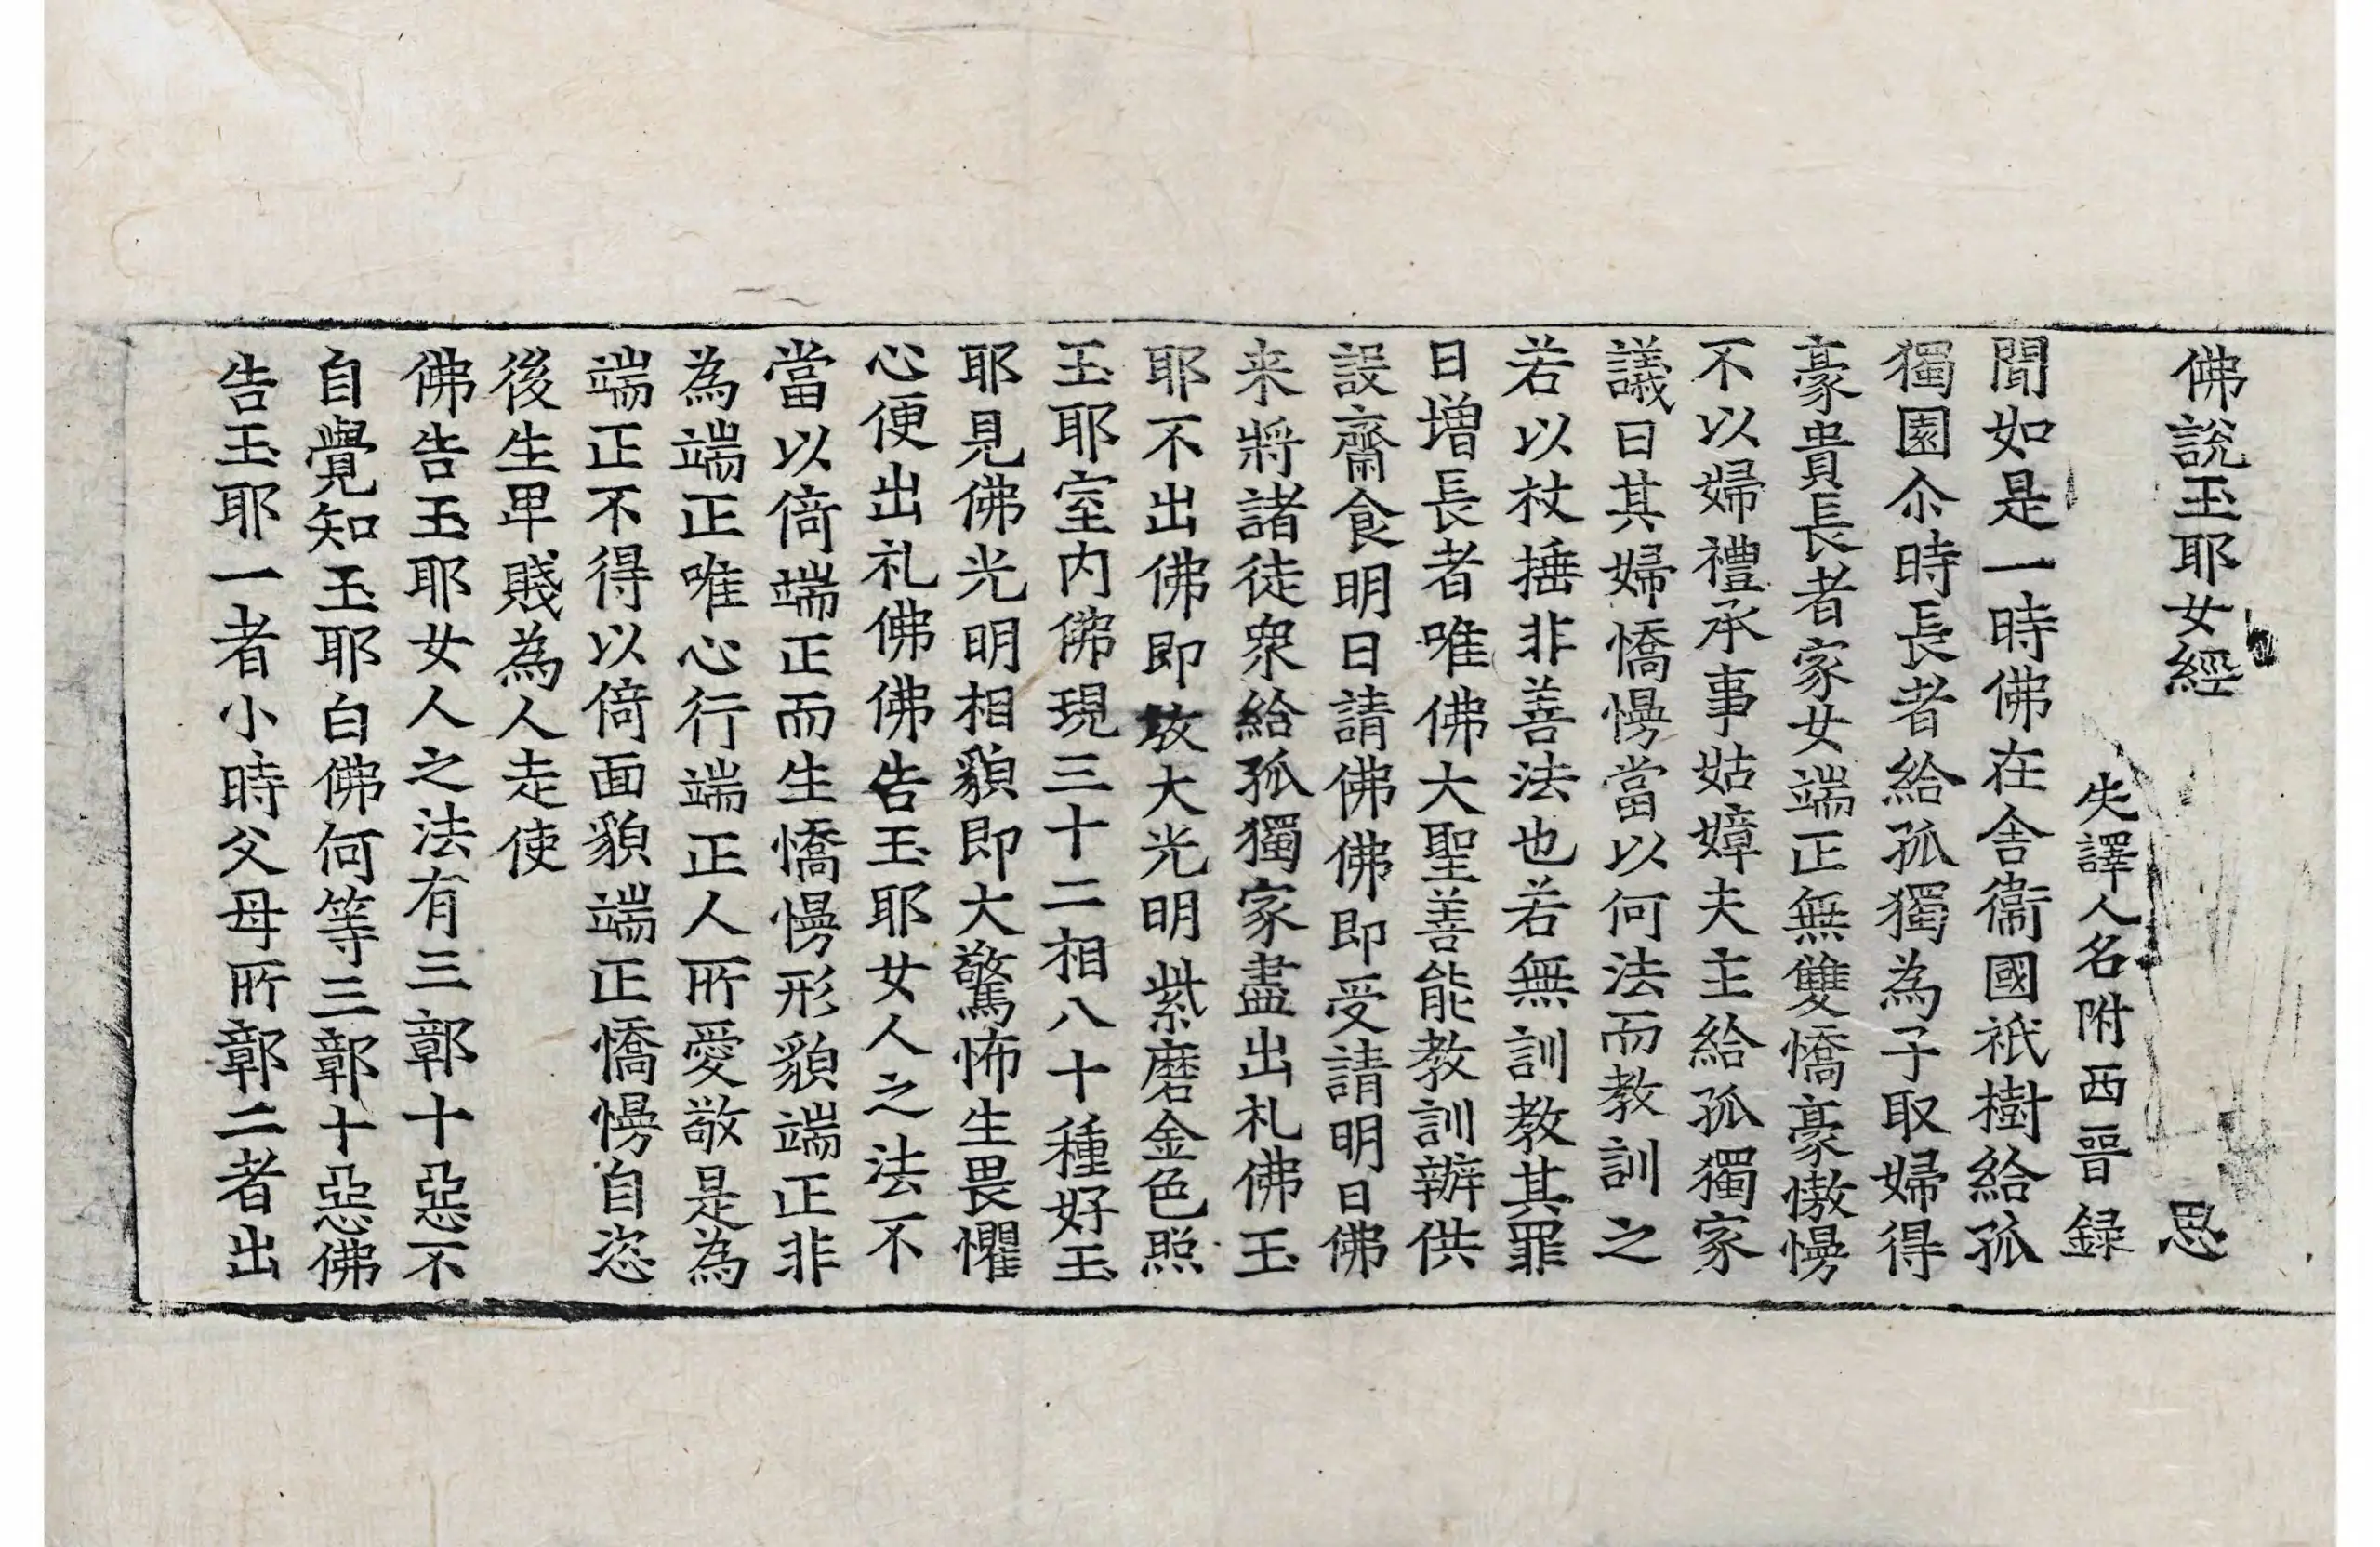 佛說玉耶女經 恩
失譯人名附西晉録
聞如是一時佛在舍衞國祇樹給孤
獨園尒時長者給孤獨為子取婦得
豪貴長者家女端正無雙憍豪慠慢
不以婦禮承事姑嫜夫主給孤獨家
議曰其婦憍慢當以何法而教訓之
若以杖捶非善法也若無訓教其罪
日增長者唯佛大聖善能教訓辦供
設齋食明日請佛佛即受請明日佛
来將諸徒衆給孤獨家盡出礼佛玉
耶不出佛即放大光明紫磨金色照
玉耶室内佛現三十二相八十種好玉
耶見佛光明相貌即大驚怖生畏懼
心便出礼佛佛告玉耶女人之法不
當以倚端正而生憍慢形貌端正非
為端正唯心行端正人所愛敬是為
端正不得以倚面貌端正憍慢自恣
後生卑賤為人走使
佛告玉耶女人之法有三鄣十惡不
自覺知玉耶白佛何等三鄣十惡佛
告玉耶一者小時父母所鄣二者出